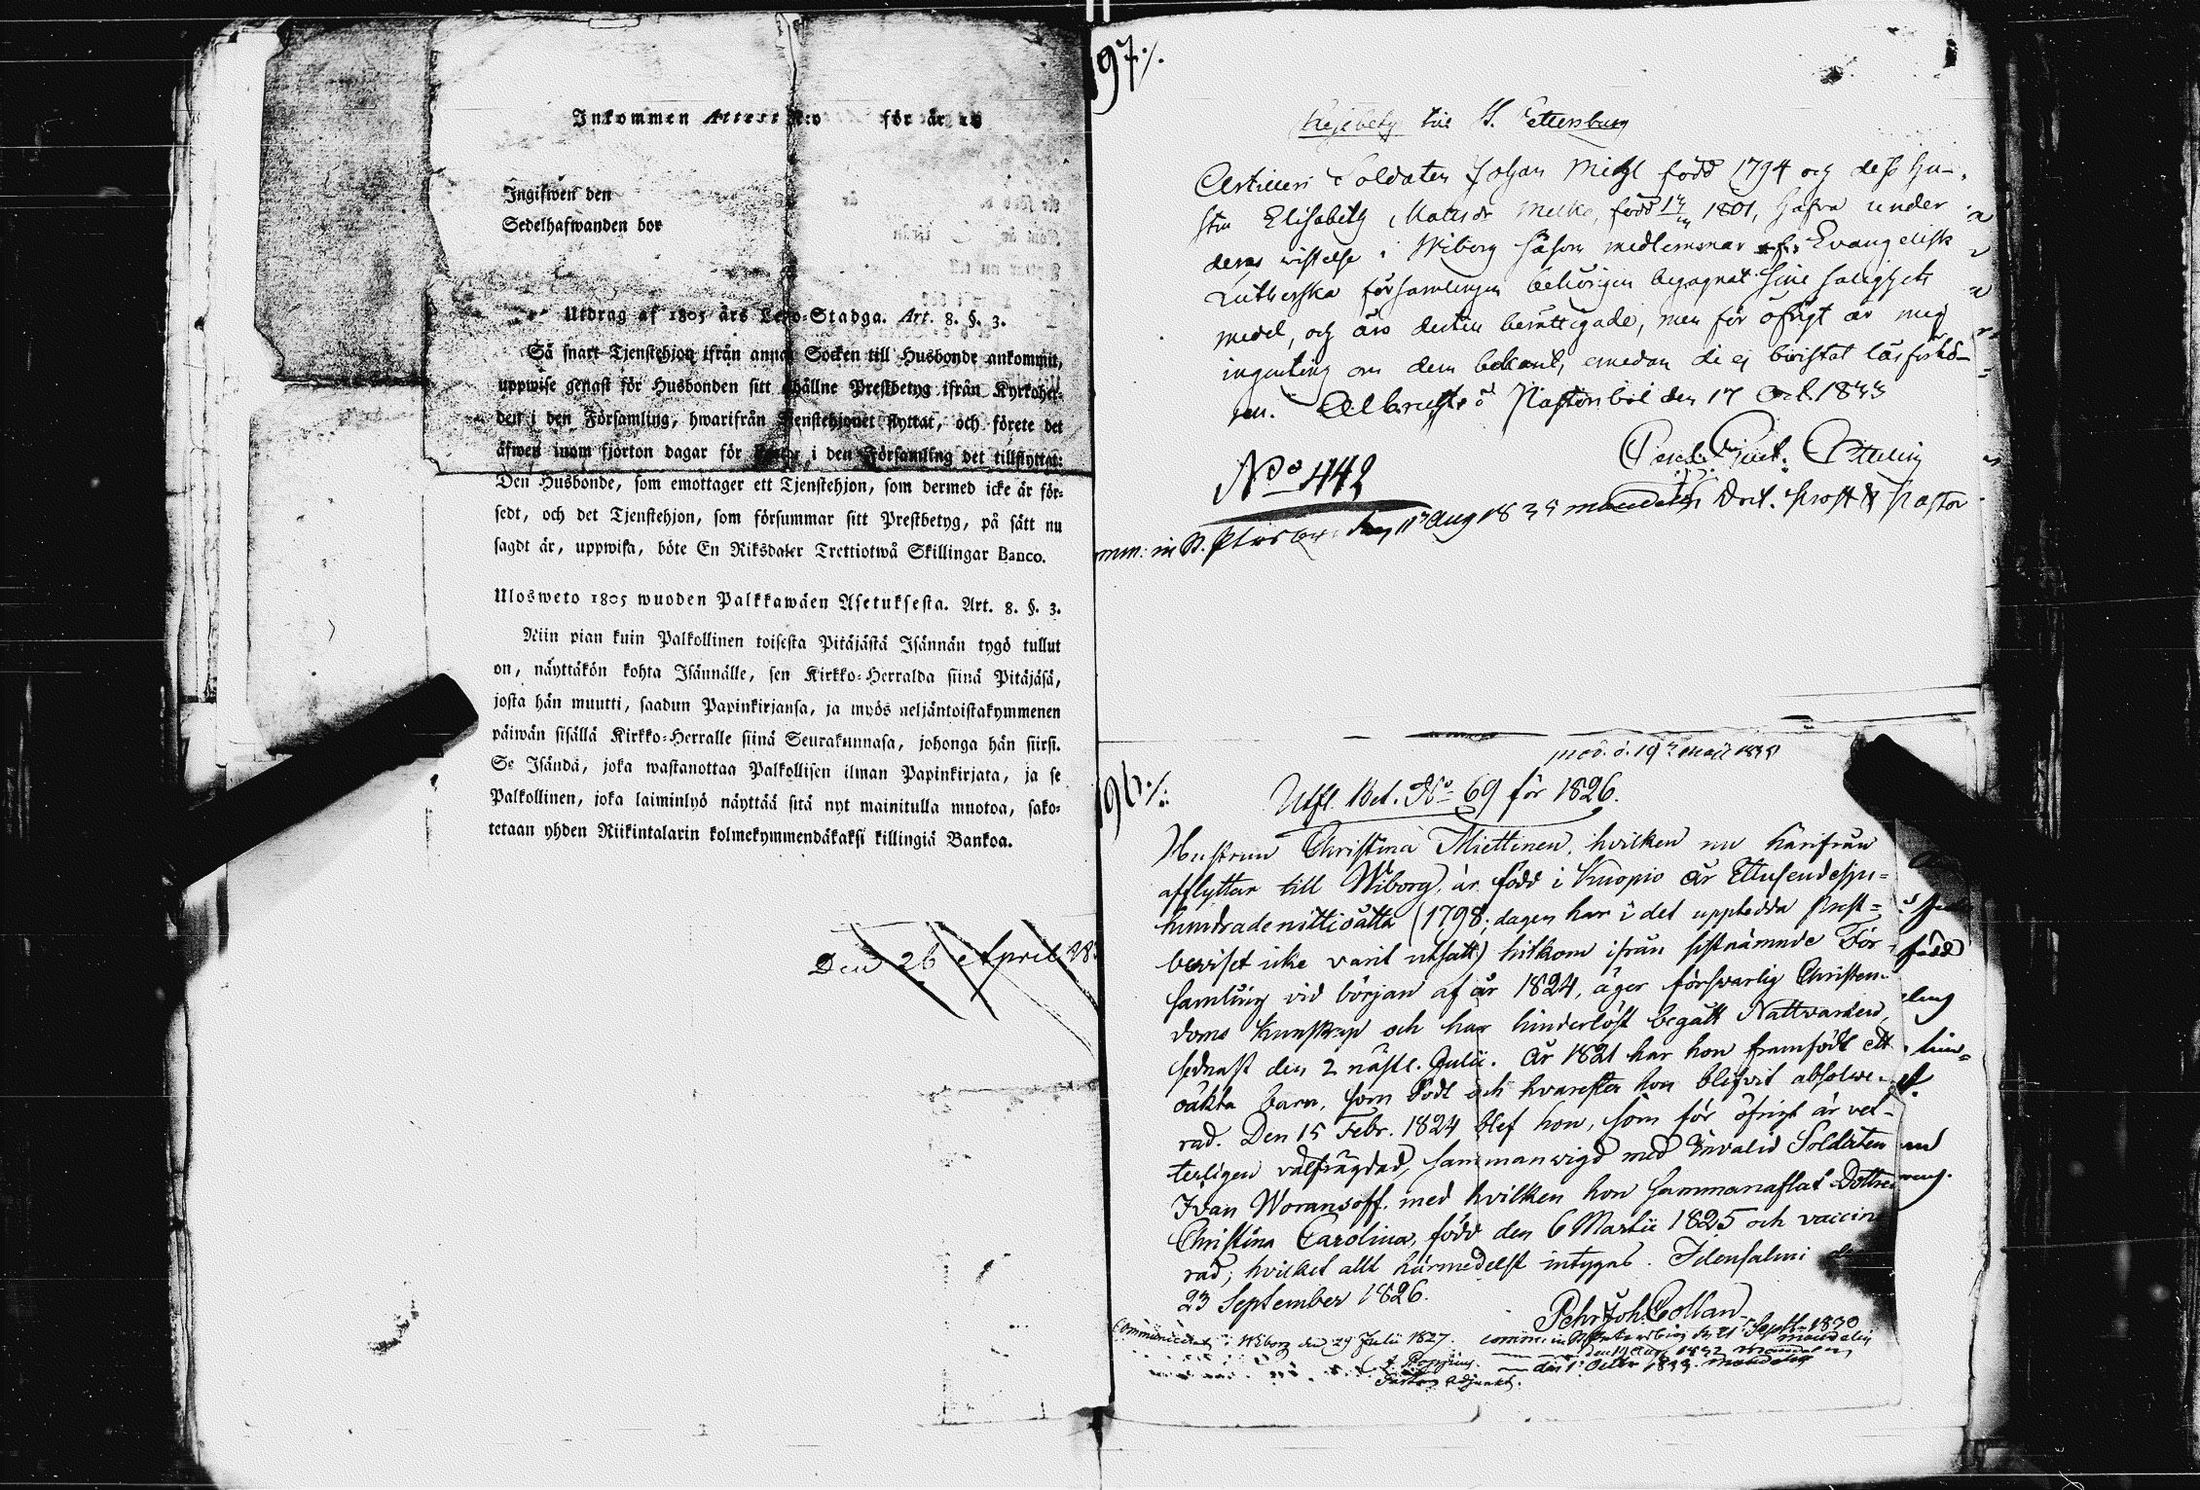 Inkommen Attest N:o för år 18
Ingifwen den
Sedelhafwanden bor
Utdrag af 1805 års Lego-Stadga. Art. 8. §. 3.
Så snart Tjenstehjon ifrån annan Socken till Husbonde ankommit,
uppwise genast för Husbonden sitt erhållne Prestbetyg ifrån Kyrkoher-
den i den Församling, hwarifrån Tjenstehjonet flyttat, och förete det
äfwen inom fjorton dagar för i den Församling det tillflyttat:
Den Husbonde, som emottager ett Tjenstehjon, som dermed icke är för-
sedt, och det Tjenstehjon, som försummar sitt Prestbetyg, på sätt nu
sagdt är, uppwisa, böte En Riksdaler Trettiotwå Skillingar Banco.
Ulosweto 1805 wuoden Palkkawäen Asetuksesta. Art. 8. §. 3.
Niin pian kuin Palkollinen toisesta Pitäjästä Isännän tygö tullut
on, näyttäkön kohta Isännälle, sen Kirkko-Herralda siinä Pitäjäsä,
josta hän muutti, saadun Papinkirjansa, ja myös neljäntoistakymmenen
päiwän sisällä Kirkko-Herralle siinä Seurakunnasa, johonga hän siirsi.
Se Isändä, joka wastanottaa Palkollisen ilman Papinkirjata, ja se
Palkollinen, joka laiminlyö näyttää sitä nyt mainitulla muotoa, sako-
tetaan yhden Riikintalarin kolmekymmendäkaksi killingiä Bankoa.
Den 26 April 18
197./.
till St. Petersburg
Artilleri Soldaten Johan född 1794 och dess hu-
stru Elisabeth Matsdr född 1801, hafva under
deras wistelse i Wiborg såsom medlemmar af Evangelisk
Lutherska församlingen behörigen begagnat sine salighets
medel, och äro dertill berättigade, men för öfrigt är mig
ingenting om dem bekant, emedan de ej bivistat läsförhö-
ren. den 17 Oct. 1833
No 442
den 11 Aug 18 Prost & Pastor
196./.
d. 19 Maii
Utfl. Bet. No 69 för 1826.
Hustrun Christina Miettinen, hvilken nu härifrån
afflyttar till Wiborg, är född i Kuopio år Ettusendesju-
hundradenittioåtta (1798; dagen har i det uppledda prest-
beviset icke varit utsatt) hitkom ifrån sistnämnde För-
samling vid början af år 1824, äger försvarlig Christen-
doms kunskap och har hinderlöst begått Nattvarden,
sednast den 2 nästl. Julii. År 1821 har hon framfödt ett
oäkta barn, som dödt och hvarefter hon blifvit absolve-
rad. Den 15 Febr. 1824 blef hon, som för öfrigt är vet-
terligen välfrägdad, sammanwigd med Invalid Soldaten
Ivan Woronsoff, med hvilken hon sammanaflat Dottren
Christina Carolina, född den 6 Martii 1825 och vaccine-
rad; hvilket allt härmedelst intygas. Idensalmi
23 September 1826.
Pehr Joh. Collan
Communicerat i Wiborg den 29 Julii 1827.
Poppius
Pastors Adjunkt.
Septbr 1830